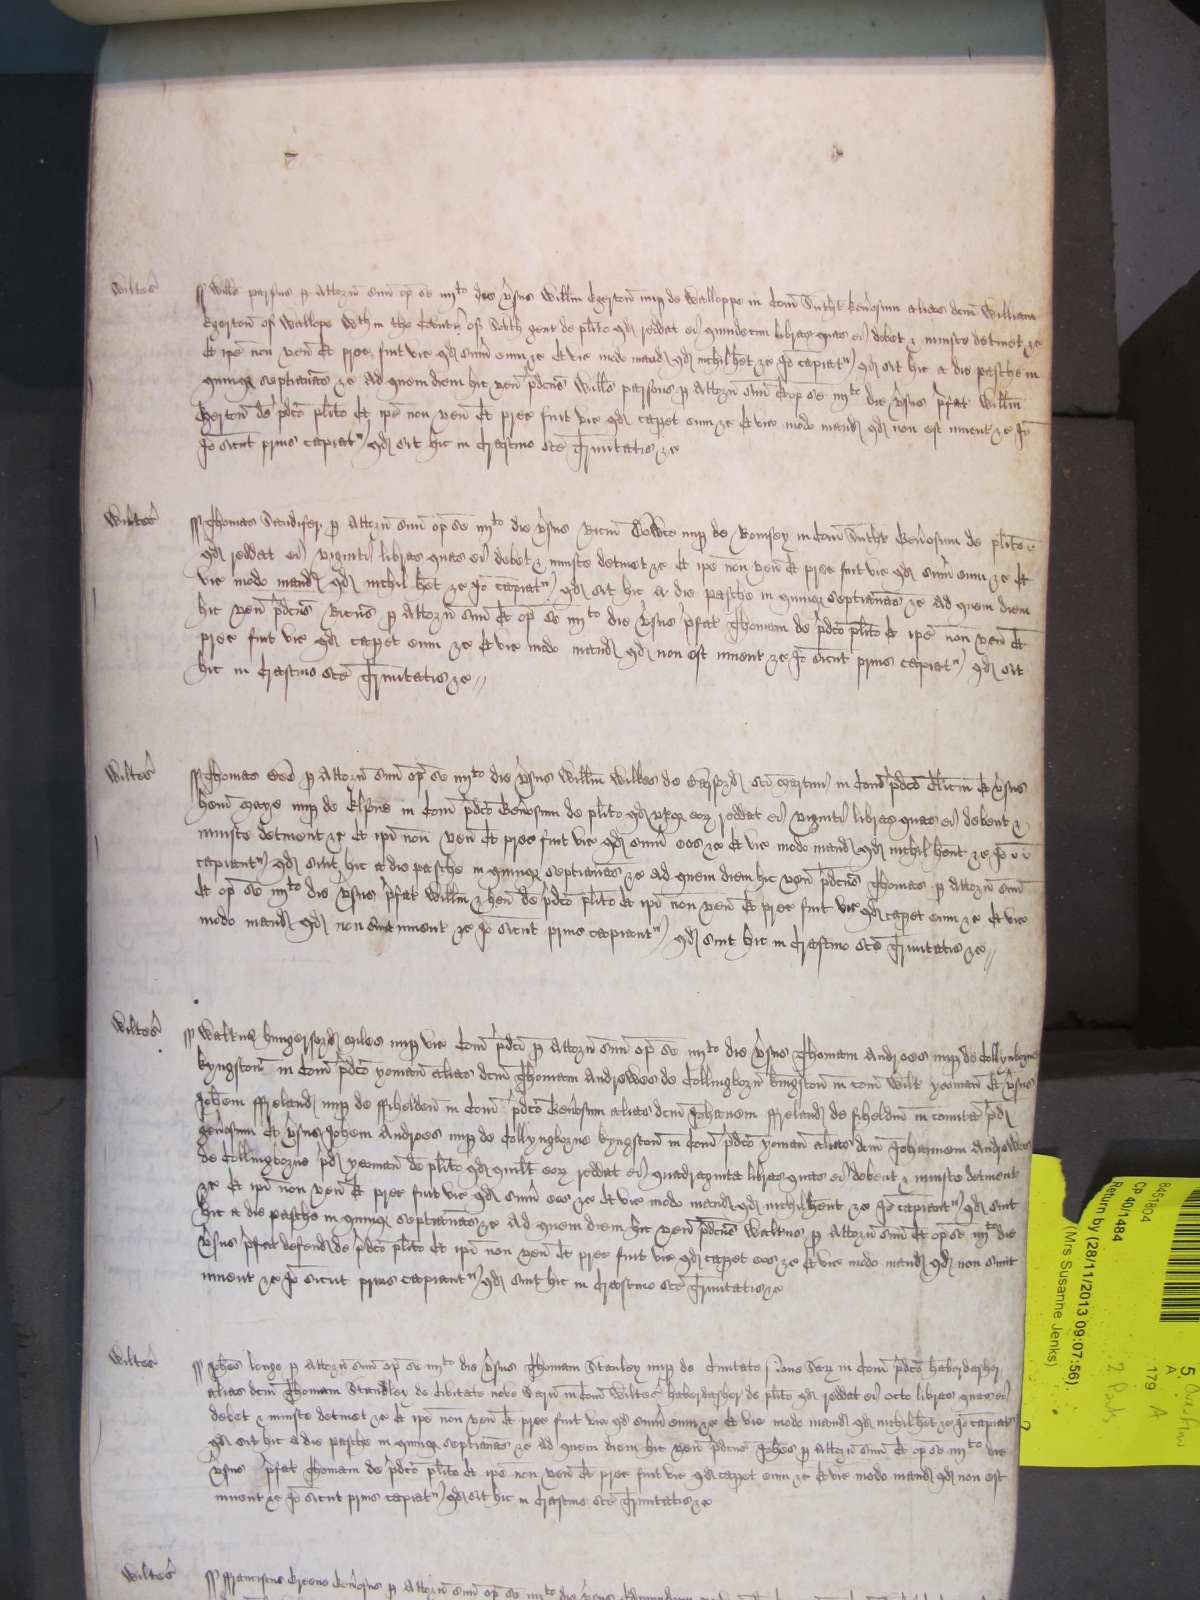 Wiltes Willms parsons p Attorn suu op se iiijto die vsus Willm Egerton nup de Walloppe in Com Suth Generosum alias dcm William
Egerton of Wallope Wthin the County of Suth gent de plito qd reddat ei quindecim libras quas ei debet & iniuste detinet zc
Et ipe non ven Et prec fuit vic qd sum eum zc Et vic modo mand qd nichil het zc Io capiatr qd sit hic a die pasche in
quinqz septimanas zc Ad quem diem hic ven pdcus Willms parsons p Attorn suu Et op se iiijto die vsus pfat Willm
Egerton de pdco plito Et ipe non ven Et prec fuit vic qd capet eum zc Et vic modo mand qd non est inuent zc Io
Io sicut prius capiatr qd sit hic in Crastino sce Trinitatis zc
Wiltes Thomas Sandifer p Attorn suu op se iiijto die vsus Ricm nup de Romsey in Com Suth Generosum de plito
qd reddat ei viginti libras quas ei debet & iniuste detinet zc Et ipe non ven Et prec fuit vic qd sum eum zc Et
vic modo mand qd nichil het zc Io capiatr qd sit hic a die pasche in quinqz septimanas zc Ad quem diem
hic ven pdcus Ricus p Attorn suu Et op se iiijto die vsus pfat Thomam de pdco plito Et ipe non ven Et
prec fuit vic qd capet eum zc Et vic modo mand qd non est inuent zc Io sicut prius capiatr qd sit
hic in Crastino sce Trinitatis zc
Wiltes Thomas p Attorn suu op se iiijto die vsus Willm Wilkes de sci martini in Com pdco Clicum Et vsus
henr maye nup de in Com pdco Generosum de plito qd vtqz eorz reddat ei viginti libras quas ei debent &
iniuste detinent zc Et ipi non ven Et prec fuit vic qd sum eos zc Et vic modo mand qd nichil hent zc Io
capiantr qd sint hic a die pasche in quinqz septimanas zc Ad quem diem hic ven pdcus Thomas p Attorn suu
Et op se iiijto die vsus pfat Willm & henr de pdco plito Et ipi non ven Et prec fuit vic qd capet eum zc Et vic
modo mand qd non sunt inuent zc Io sicut prius capiantr qd sint hic in Crastino sce Trinitatis zc
Wiltes Waltrus hungerford miles nup vic Com pdci p Attorn suu op se iiijto die vsus Thomam Androes nup de Collyngborne
kyngston in Com pdco yoman alias dcm Thomam Andrewes de Collingborn kingston in com Wilt yeoman Et vsus
Johem ffreland nup de ffihelden in Com pdco Generosum alias dcm Johannem ffreland de fiheldin in comitat pd
generosum Et vsus Johem Androes nup de Collyngborne kyngston in Com pdco yoman alias dcm Johannem Andrewes
de Collingborne pd yeoman de plito qd quilt eorz reddat ei quadraginta libras quas ei debent & iniuste detinent
zc Et ipi non ven Et prec fuit vic qd sum eos zc Et vic modo mand qd nichil hent zc Io capiantr qd sint
hic a die pasche in quinqz septimanas zc Ad quem diem hic ven pdcus Waltrus p Attorn suu Et op se iiijto die
vsus pfat defend de pdco plito Et ipi non ven Et prec fuit vic qd capet eos zc Et vic modo mand qd non sunt
inuent zc Io sicut prius capiantr qd sint hic in Crastino sce Trinitatis zc
Wiltes Johes longe p Attorn suu op se iiijto die vsus Thomam Stanley nup de Ciuitate noue Sarz in Com pdco haberdasher
alias dcm Thomam Standley de Civitate nove Sarum in Com Wiltes haberdasher de plito qd reddat ei octo libras quas ei
debet & iniuste detinet zc Et ipe non ven Et prec fuit vic qd sum eum zc Et vic modo mand qd nichil het zc Io capiatr
qd sit hic a die pasche in quinqz septimanas zc Ad quem diem hic ven pdcus Johes p Attorn suu Et op se iiijto die
vsus pfat Thomam de pdco plito Et ipe non ven Et prec fuit vic qd capet eum zc Et vic modo mand qd non est
inuent zc Io sicut prius capiatr qd sit hic in Crastino sce Trinitatis zc
Wiltes ffranciscus Grene Generosus p Attorn suu op se iiijto die vsus Edmundum
8451804
CP 40/1484
Return by (28/11/2013 09:07:56)
(Mrs Susanne Jenks)
5
A
179 A
2 Parts